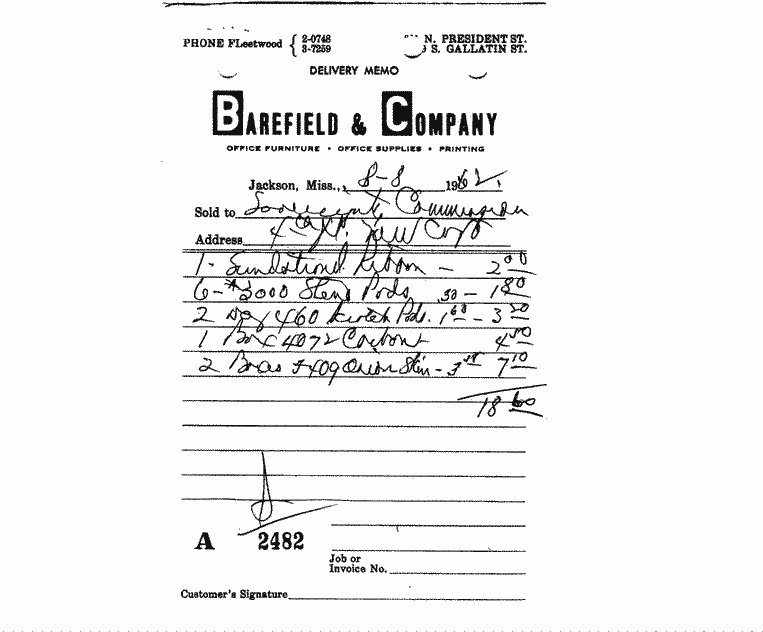 PHONE FLeetwood { 2-0748 N. PRESIDENT ST.
3-7259 S. GALLATIN ST.
DELIVERY MEMO
BAREFIELD & COMPANY
OFFICE FURNITURE • OFFICE SUPPLIES • PRINTING
Jackson, Miss., 8-8 1962.
Sold to Commission
Address
1 - Sundstrand Ribbon - 2 00
6 - #2000 Steno Pads .30 - 1 80
2 No 1460 Pads. 1 60 - 3 20
1 Box 4072 Carbon 4 50
2 Boxes #409 Onion Skin - 3 55 7 10
18 60
A 2482
Job or
Invoice No.
Customer's Signature